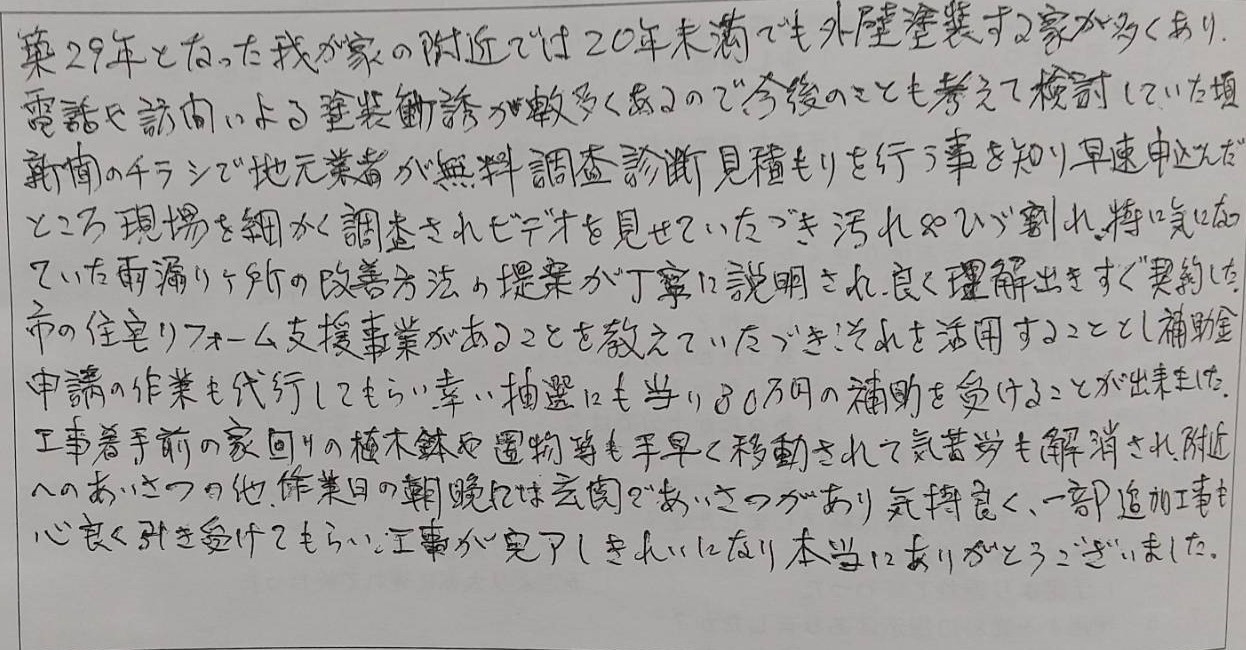 築29年となった我が家の附近では20年未満でも外壁塗装する家が多くあり、
電話や訪問による塗装勧誘が数多くあるので今後のことも考えて検討していた頃
新聞のチラシで地元業者が無料調査診断見積もりを行う事を知り早速申込んだ
ところ現場を細かく調査されビデオを見せていただき汚れやひび割れ、特に気になっ
ていた雨漏りヶ所の改善方法の提案が丁寧に説明され、良く理解出きすぐ契約した。
市の住宅リフォーム支援事業があることを教えていただき、それを活用することとし補助金
申請の作業も代行してもらい幸い抽選にも当り30万円の補助を受けることが出来ました。
工事着手前の家回りの植木鉢や置物等も手早く移動されて気苦労も解消され、附近
へのあいさつの他、作業日の朝晩には玄関であいさつがあり気持良く、一部追加工事も
心良く引き受けてもらい、工事が完了しきれいになり本当にありがとうございました。